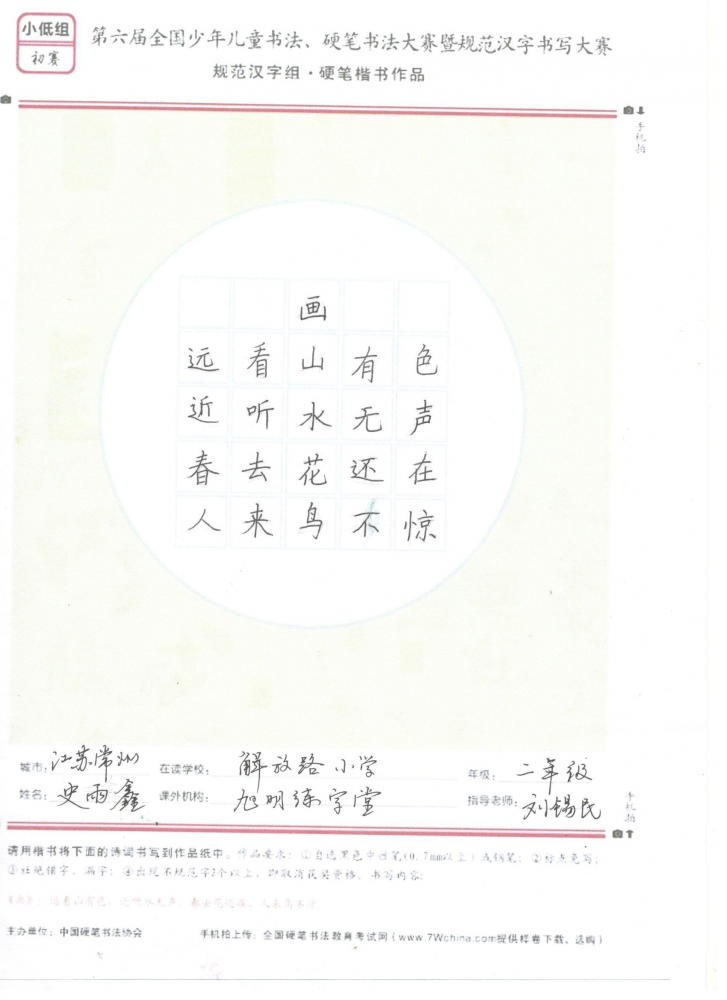 小低组
初赛
第六届全国少年儿童书法、硬笔书法大赛暨规范汉字书写大赛
规范汉字组·硬笔楷书作品
手机拍
画
远看山有色
近听水无声
春去花还在
人来鸟不惊
城市：江苏常州 在读学校：解放路小学 年级：二年级
姓名：史雨鑫 课外机构：旭明练字堂 指导老师：刘锡民
手机拍
请用楷书将下面的诗词书写到作品纸中。作品要求：①自选黑色中性笔(0.7mm以上)或钢笔；②标点免写；
③杜绝错字、漏字；④出现不规范字2个以上，即取消获奖资格。书写内容：
远看山有色，近听水无声。春去花还在，人来鸟不惊。
主办单位：中国硬笔书法协会 手机拍上传：全国硬笔书法教育考试网（www.7Wchina.com提供样卷下载、选购）